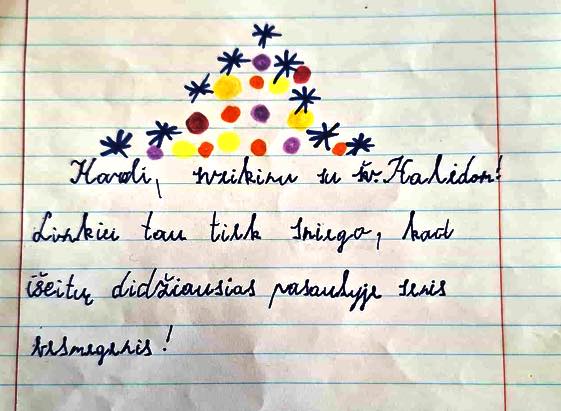 Hardi, sveikinu su šv. Kalėdom!
Linkiu tau tiek sniego, kad
išeitų didžiausias pasaulyje senis
besmegenis!